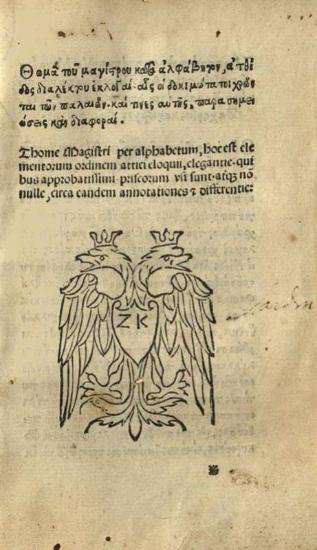 Θωμᾶ τοῦ μαγίστρου κατὰ ἀλφάβητον, ἀτθί
δος διαλέκτου ἐκλογαί· αἷς οἱ δοκιμώτατοι χρῶν
ται τῶν παλαιῶν· καί τινες αὐτῆς, παρασημει
ώσεις καὶ διαφοραί.
Thome Magistri per alphabetum, hoc est ele
mentorum ordinem attici eloquii, elegantie· qui
bus approbatissimi priscorum vsi sunt· atq̃ nõ
nulle, circa eandem annotationes & differentie:
ΖΚ